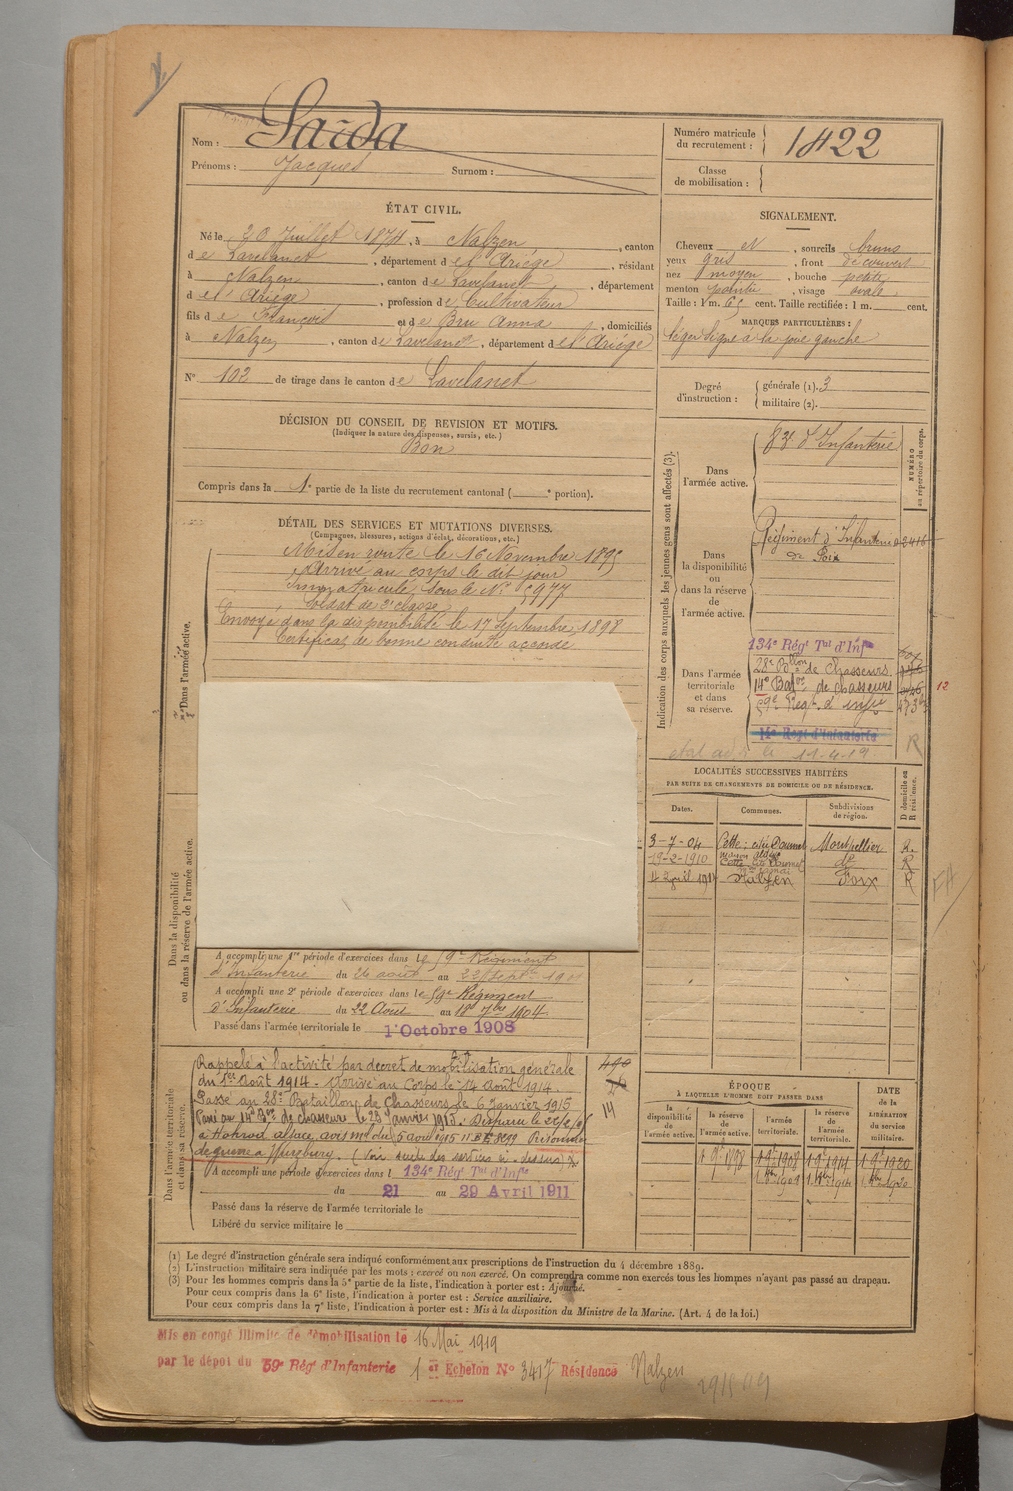 Nom : Sarda
Prénoms : Jacques Surnom :
Numéro matricule du recrutement : 1422
Classe de mobilisation :
ÉTAT CIVIL.
Né le 20 Juillet 1874, à Nalzen, canton
de Lavelanet, département de l'Ariège, résidant
à Nalzen, canton de Lavelanet, département
de l'Ariège, profession de Cultivateur
fils de François et de Bru Anna, domiciliés
à Nalzen, canton de Lavelanet, département de l'Ariège
N° 102 de tirage dans le canton de Lavelanet
SIGNALEMENT.
Cheveux et, sourcils bruns
yeux gris, front découvert
nez moyen, bouche petite
menton pointu, visage ovale
Taille : 1 m. 65 cent. Taille rectifiée : 1 m. cent.
MARQUES PARTICULIÈRES :
léger signe à la joue gauche
Degré d'instruction : générale (1). 3
militaire (2).
DÉCISION DU CONSEIL DE REVISION ET MOTIFS.
(Indiquer la nature des dispenses, sursis, etc.)
Bon
Compris dans la 1e partie de la liste du recrutement cantonal ( e portion).
DÉTAIL DES SERVICES ET MUTATIONS DIVERSES.
(Campagnes, blessures, actions d'éclat, décorations, etc.)
Dans l'armée active.
Mis en route le 16 Novembre 1895
Arrivé au corps le dit jour
Immatriculé sous le N° 5977
Soldat de 2e classe
Envoyé dans la disponibilité le 17 Septembre 1898
Certificat de bonne conduite accordé
Dans la disponibilité
ou dans la réserve de l'armée active.
A accompli une 1re période d'exercices dans le 59e Régiment
d'Infanterie du 26 août au 22 Septbre
A accompli une 2e période d'exercices dans le 59e Régiment
d'Infanterie du 22 Août au 18 7bre 1904.
Passé dans l'armée territoriale le 1 Octobre 1908
Dans l'armée territoriale
et dans sa réserve.
Rappelé à l'activité par décret de mobilisation générale
du 1er Août 1914 - Arrivé au Corps le 14 Août 1914.
Passé au 28e Bataillon de Chasseurs le 6 Janvier 1915
Passé au 14e Bon de chasseurs le 23 Janvier 1915. Disparu le
à Hohrod alsace, avis ml du 5 août 1915 Prisonnier
de guerre à (Voir suite des services ci-dessus)
A accompli une période d'exercices dans l 134e Régt Tal d'Infie
du 21 au 29 Avril 1911
Passé dans la réserve de l'armée territoriale le
Libéré du service militaire le
490
14
Indication des corps auxquels les jeunes gens sont affectés (3).
NUMÉRO au répertoire du corps.
Dans l'armée active.
d'Infanterie
Dans la disponibilité ou dans la réserve de l'armée active.
Régiment d'Infanterie 02416
de Foix
Dans l'armée territoriale et dans sa réserve.
134e Régt Tal d'Infie
28e Bllon de Chasseurs
14e Bon de chasseurs
12
59e Régt d'infie
14e Regt d'Infanterie
R
le 11-4-19
LOCALITÉS SUCCESSIVES HABITÉES
PAR SUITE DE CHANGEMENTS DE DOMICILE OU DE RÉSIDENCE.
D domicile ou R résidence.
Dates. Communes. Subdivisions de région.
3-7-04 Cette : cité Doumet Montpellier R.
19-2-1910 Cette cité Doumet de R
4 avril 1911 Nalzen Foix R
ÉPOQUE
À LAQUELLE L'HOMME DOIT PASSER DANS
DATE DE LA LIBÉRATION du service militaire.
la disponibilité de l'armée active. la réserve de l'armée active. l'armée territoriale. la réserve de l'armée territoriale.
(1) Le degré d'instruction générale sera indiqué conformément aux prescriptions de l'instruction du 4 décembre 1889.
(2) L'instruction militaire sera indiquée par les mots : exercé ou non exercé. On comprendra comme non exercés tous les hommes n'ayant pas passé au drapeau.
(3) Pour les hommes compris dans la 5e partie de la liste, l'indication à porter est : Ajourné.
Pour ceux compris dans la 6e liste, l'indication à porter est : Service auxiliaire.
Pour ceux compris dans la 7e liste, l'indication à porter est : Mis à la disposition du Ministre de la Marine. (Art. 4 de la loi.)
Mis en congé illimité de démobilisation le 16 Mai 1919
par le dépôt du 59e Régt d'Infanterie 1 er Echelon N° 3417 Résidence Nalzen